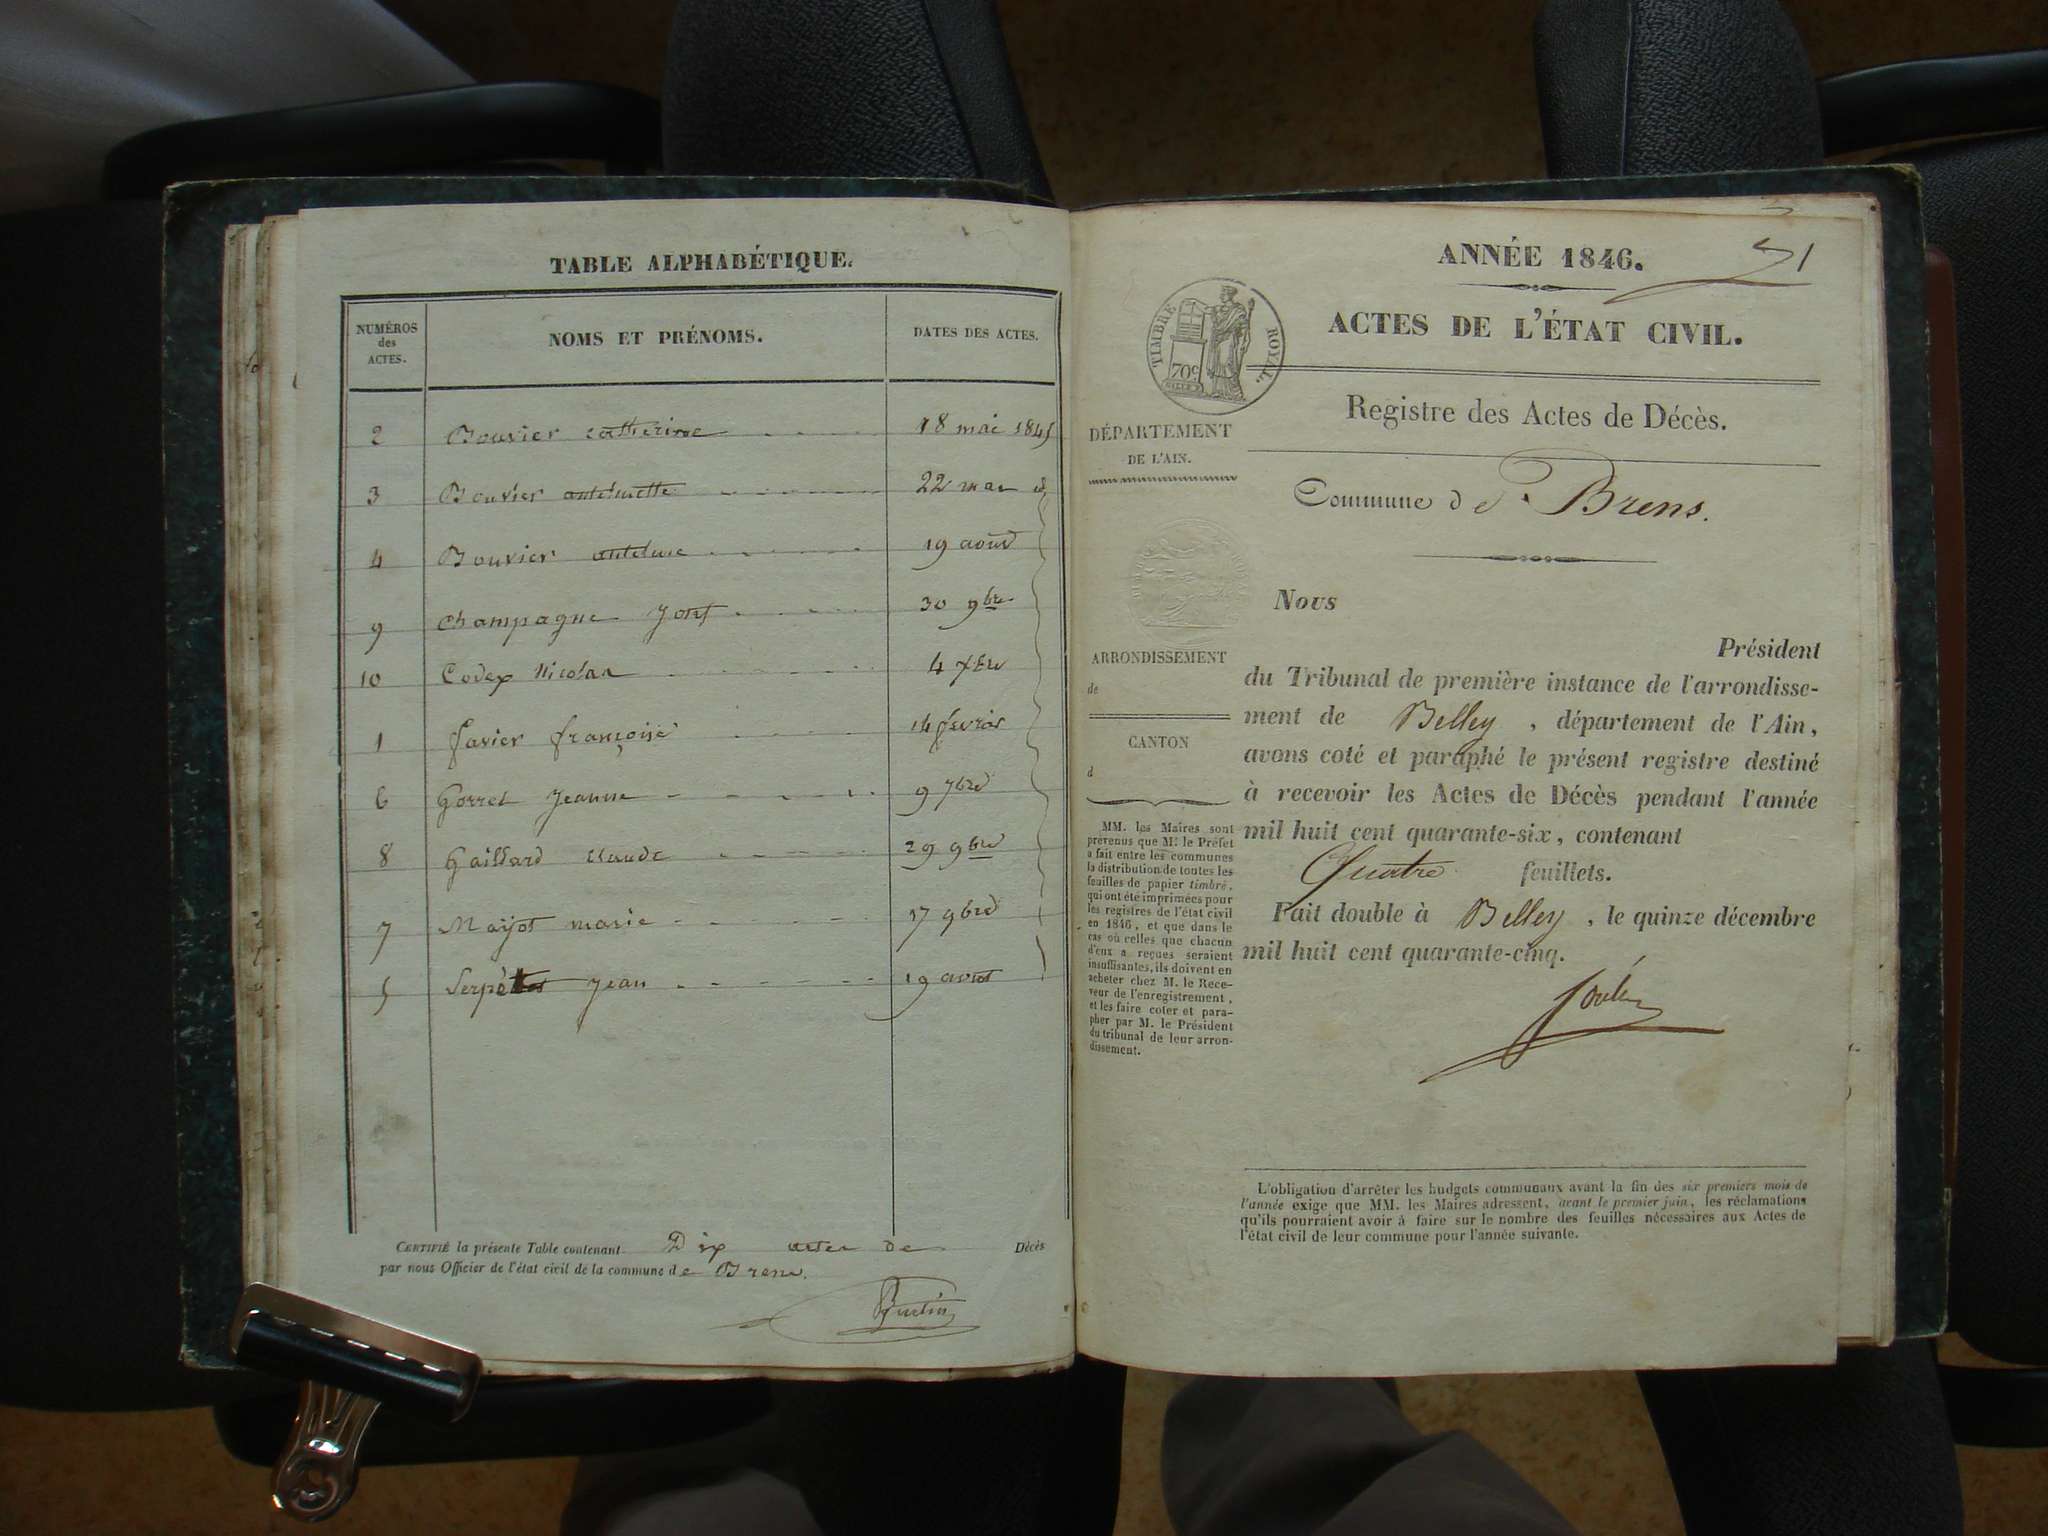 TABLE ALPHABÉTIQUE.
NUMÉROS des ACTES. NOMS ET PRÉNOMS. DATES DES ACTES.
2 Bouvier catherine 18 mai 1845
3 Bouvier antelmette 22 mai id
4 Bouvier antelme 19 août
9 Champagne Josef 30 9bre
10 Codex Nicolas 4 xbre
1 favier françoise 14 fevrier
6 Gorret Jeanne 9 7bre
8 Gaillard claude 29 9bre
7 Mayot marie 17 9bre
5 Jean 19 avout
CERTIFIÉ la présente Table contenant Dix actes de Décès
par nous Officier de l'état civil de la commune de Brens.
ANNÉE 1846.
1
TIMBRE ROYAL.
70c
ACTES DE L'ÉTAT CIVIL.
Registre des Actes de Décès.
DÉPARTEMENT
DE L'AIN.
Commune de Brens.
Nous
Président
du Tribunal de première instance de l'arrondisse-
ment de Belley, département de l'Ain,
avons coté et paraphé le présent registre destiné
à recevoir les Actes de Décès pendant l'année
mil huit cent quarante-six, contenant
Quatre feuillets.
Fait double à Belley, le quinze décembre
mil huit cent quarante-cinq.
ARRONDISSEMENT
de
CANTON
d
MM. les Maires sont
prévenus que M. le Préfet
a fait entre les communes
la distribution de toutes les
feuilles de papier timbré,
qui ont été imprimées pour
les registres de l'état civil
en 1846, et que dans le
cas où celles que chacun
d'eux a reçues seraient
insuffisantes, ils doivent en
acheter chez M. le Rece-
veur de l'enregistrement,
et les faire coter et para-
pher par M. le Président
du tribunal de leur arron-
dissement.
L'obligation d'arrêter les budgets communaux avant la fin des six premiers mois de
l'année exige que MM. les Maires adressent, avant le premier juin, les réclamations
qu'ils pourraient avoir à faire sur le nombre des feuilles nécessaires aux Actes de
l'état civil de leur commune pour l'année suivante.